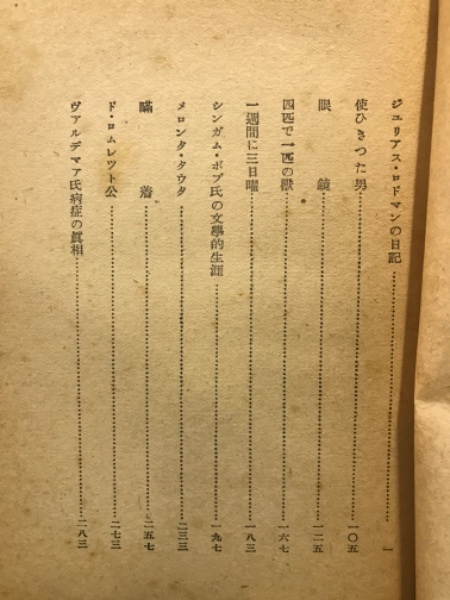 ジユリアス・ロドマンの日記……一
使ひきつた男……一〇五
眼鏡……一二五
四匹で一匹の獸……一六七
一週間に三日曜……一八三
シンガム・ボブ氏の文學的生涯……一九七
メロンタ・タウタ……二三三
瞞着……二五七
ド・ロムレツト公……二七三
ヴアルデマア氏病症の眞相……二八三